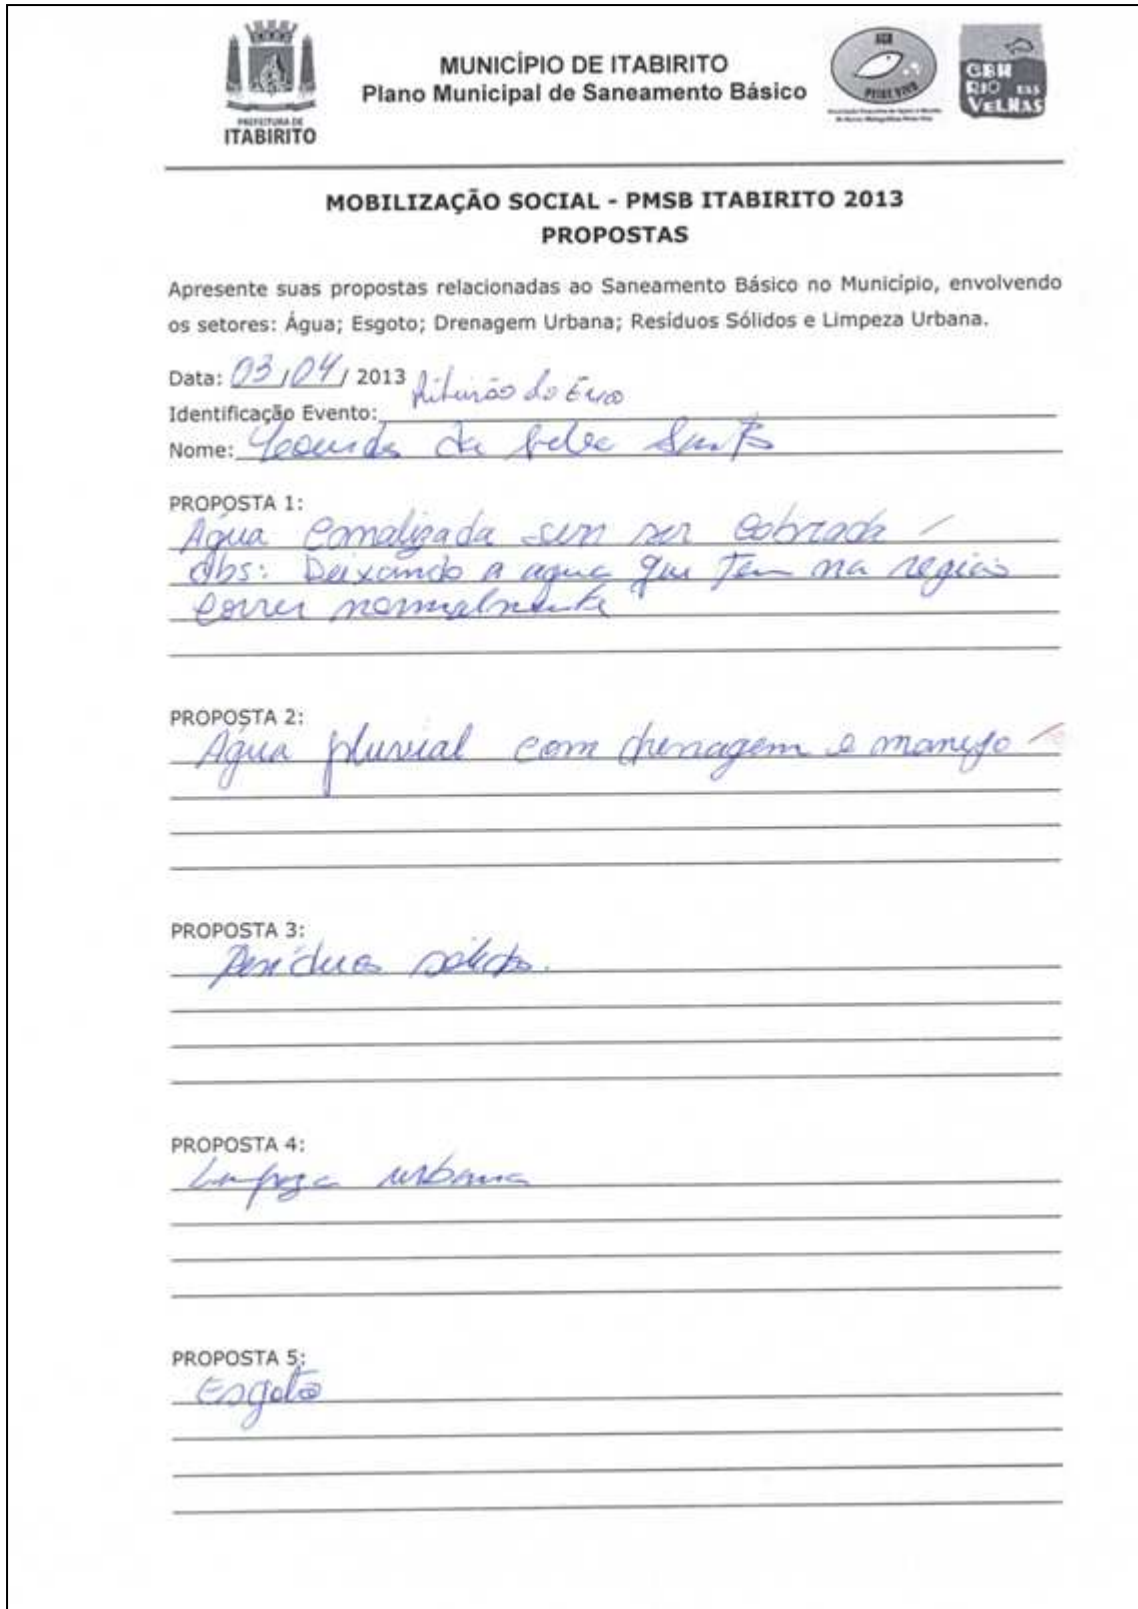 PREFEITURA DE
ITABIRITO
MUNICÍPIO DE ITABIRITO
Plano Municipal de Saneamento Básico
AGB
PEIXE VIVO
CBH
RIO DAS
VELHAS
MOBILIZAÇÃO SOCIAL - PMSB ITABIRITO 2013
PROPOSTAS
Apresente suas propostas relacionadas ao Saneamento Básico no Município, envolvendo
os setores: Água; Esgoto; Drenagem Urbana; Resíduos Sólidos e Limpeza Urbana.
Data: 03/04/ 2013
Identificação Evento: Ribeirão do Eixo
Nome: da
PROPOSTA 1:
Água canalizada sem ser cobrada
Obs: Deixando a agua que tem na região
correr normalmente
PROPOSTA 2:
Água pluvial com drenagem e manejo
PROPOSTA 3:
Resíduos sólidos.
PROPOSTA 4:
Limpeza urbana
PROPOSTA 5:
Esgoto